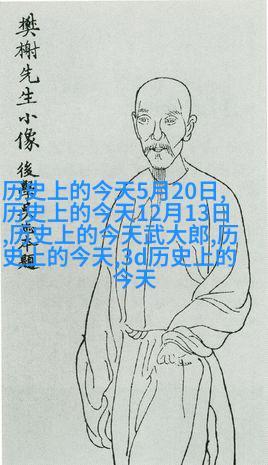 樊榭先生小像
後學
題
历史上的今天5月20日,
历史上的今天12月13日
,历史上的今天武大郎,历
史上的今天,3d历史上的
今天